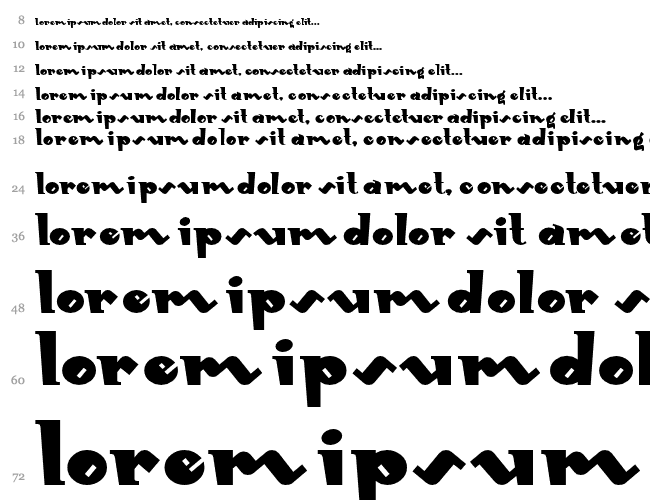 8 lorem ipsum dolor sit amet, consectetuer adipiscing elit...
10 lorem ipsum dolor sit amet, consectetuer adipiscing elit...
12 lorem ipsum dolor sit amet, consectetuer adipiscing elit...
14 lorem ipsum dolor sit amet, consectetuer adipiscing elit...
16 lorem ipsum dolor sit amet, consectetuer adipiscing elit...
18 lorem ipsum dolor sit amet, consectetuer adipiscing
24 lorem ipsum dolor sit amet, consectetuer
36 lorem ipsum dolor sit amet
48 lorem ipsum dolor s
60 lorem ipsum dol
72 lorem ipsum